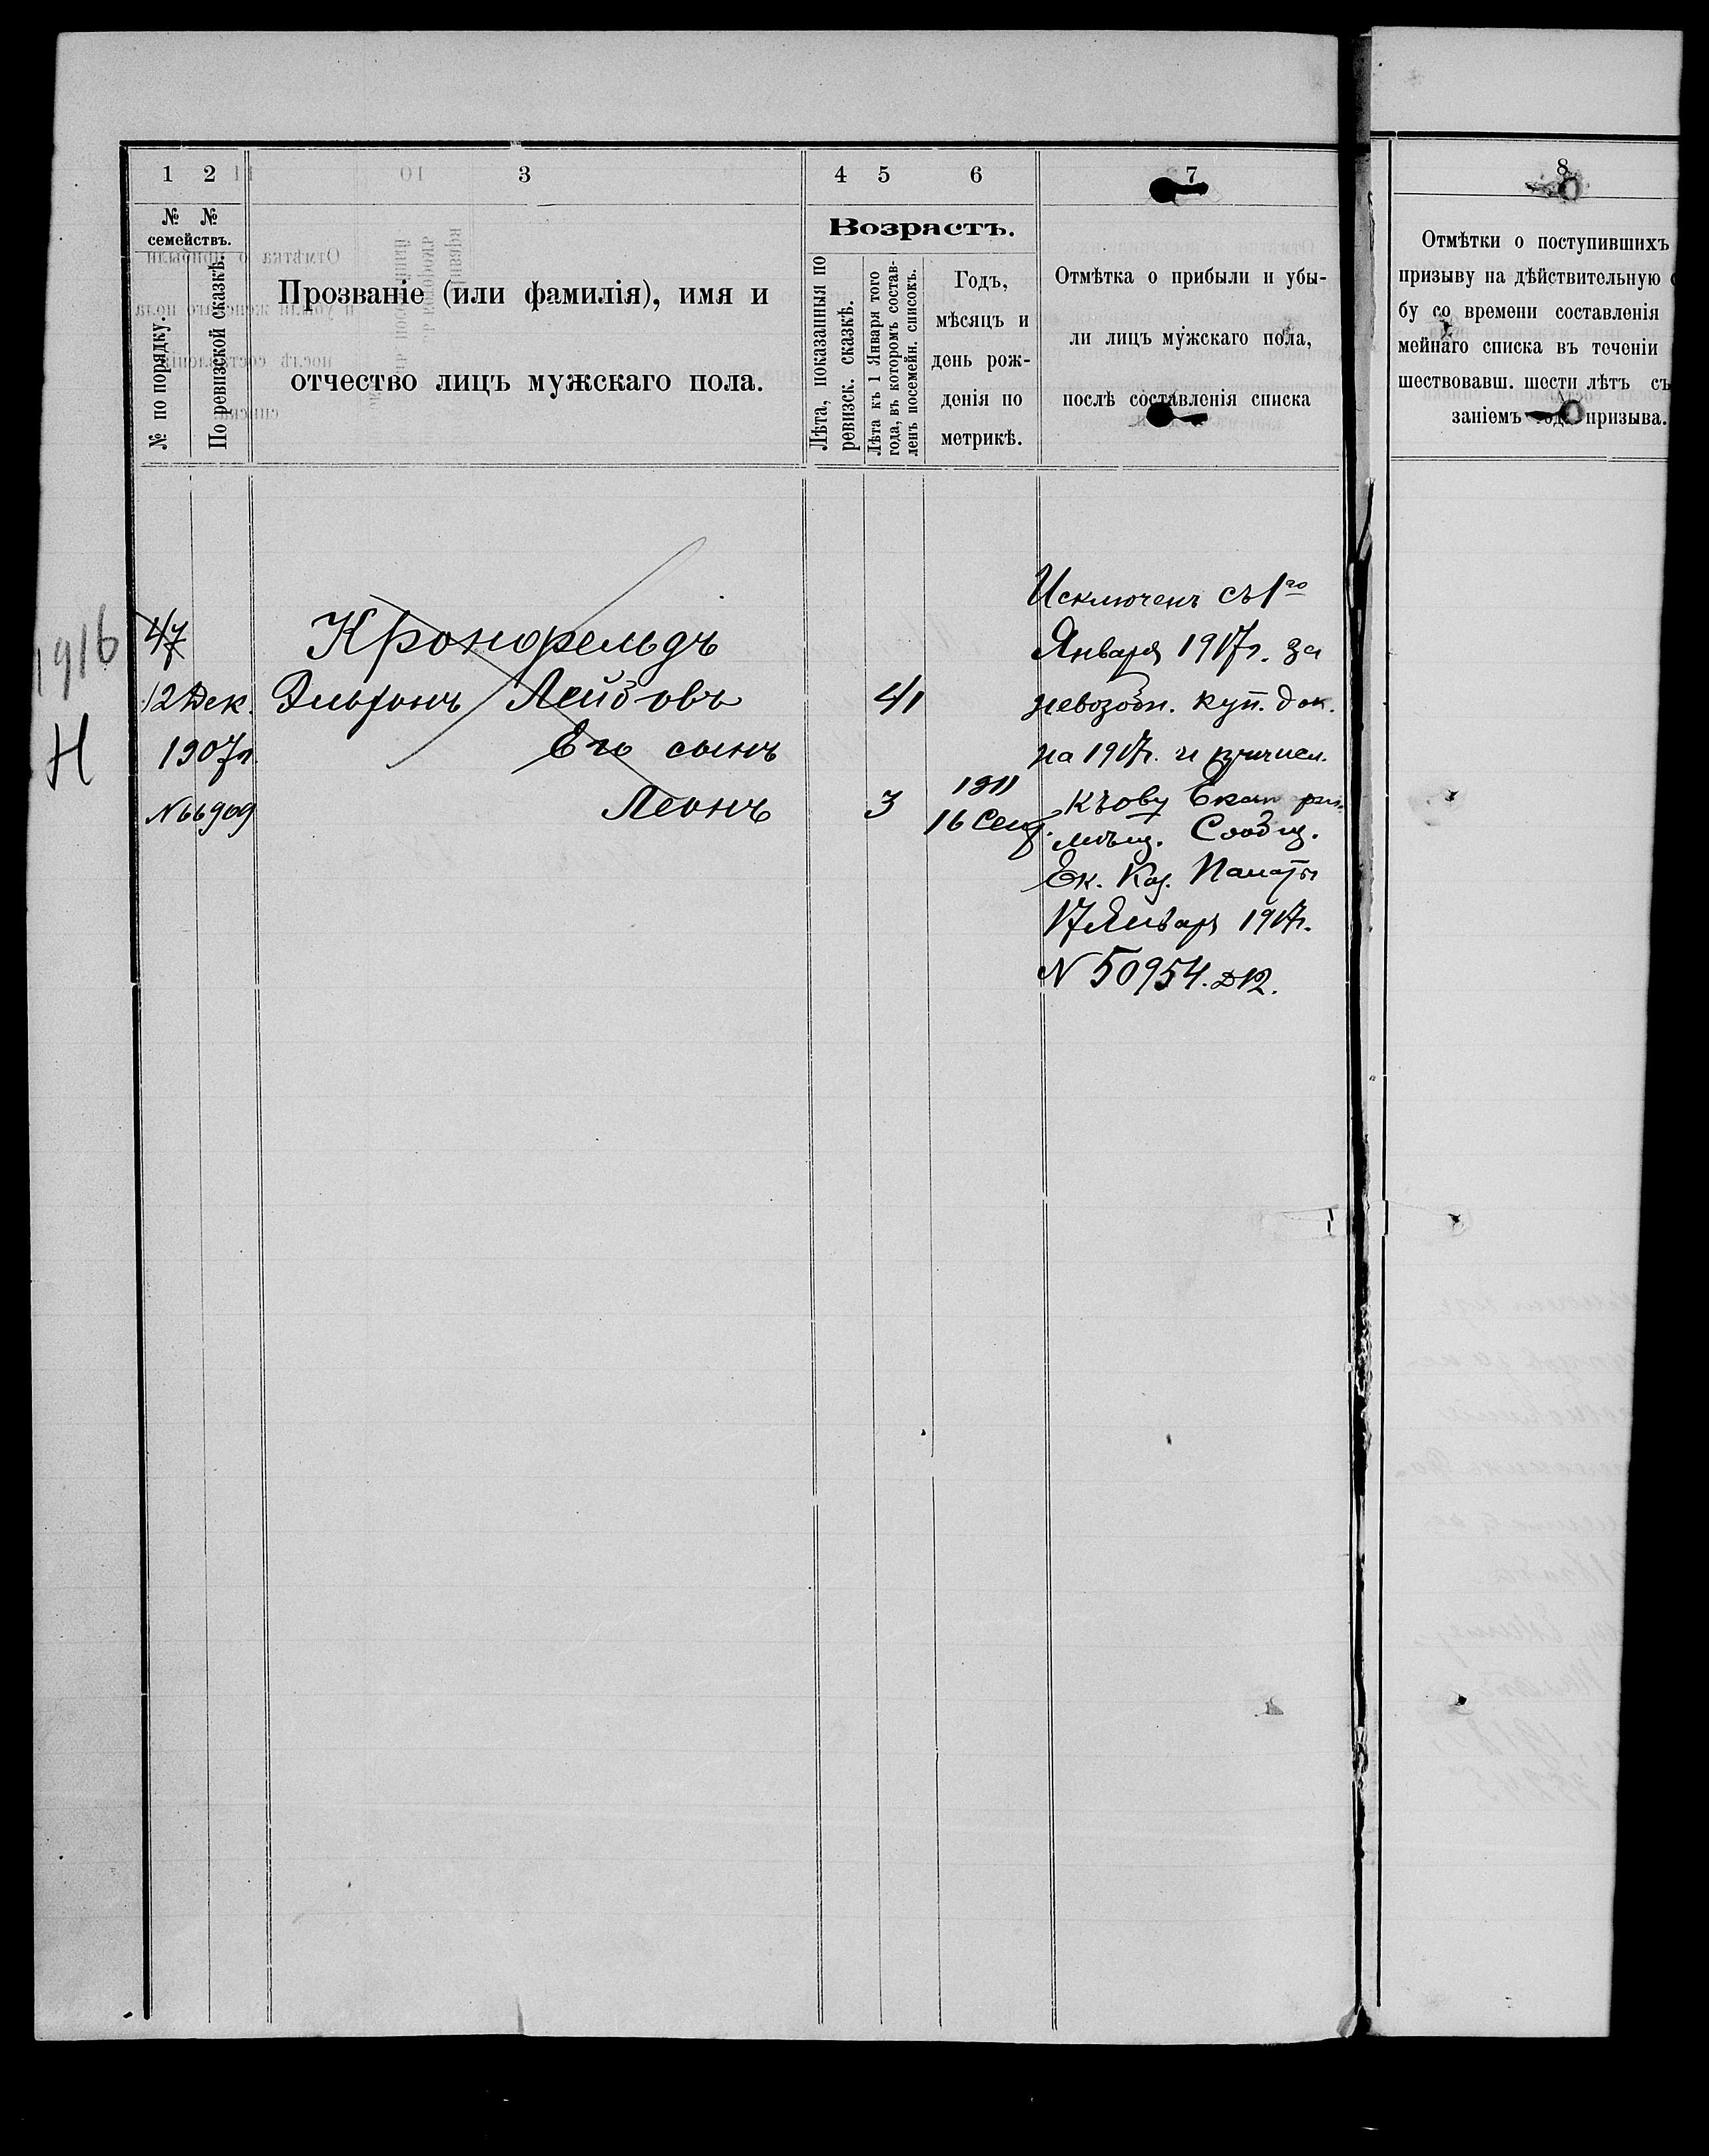 1 2 3 4 5 6 7
№ №
семействъ.
№ по порядку.
По ревизской сказкѣ.
Прозваніе (или фамилія), имя и
отчество лицъ мужскаго пола.
Возрастъ.
Лѣта, показанныя по
ревизск. сказкѣ.
Лѣта къ 1 Января того
года, въ которомъ состав-
ленъ посемейн. списокъ.
Годъ,
мѣсяцъ и
день рож-
денія по
метрикѣ.
Отмѣтка о прибыли и убы-
ли лицъ мужскаго пола,
послѣ составленія списка
8
Отмѣтки о поступившихъ
призыву на дѣйствительную
бу со времени составленія
мейнаго списка въ теченіи
шествовавш. шести лѣтъ съ
заніемъ года призыва.
1916
Н
47
12 Дек.
1907г.
N 66909
Кронфельдъ
Лейбовъ
Его сынъ
Леонъ
41
3
1911
16 Сент.
Исключенъ съ 1го
Января 1917г. за
невозобн. куп. док.
на 1917г. и причисл.
къ Екат.
мѣщ. Сообщ.
Ек. Каз. Палаты
17 Января 1917г.
N 50954.